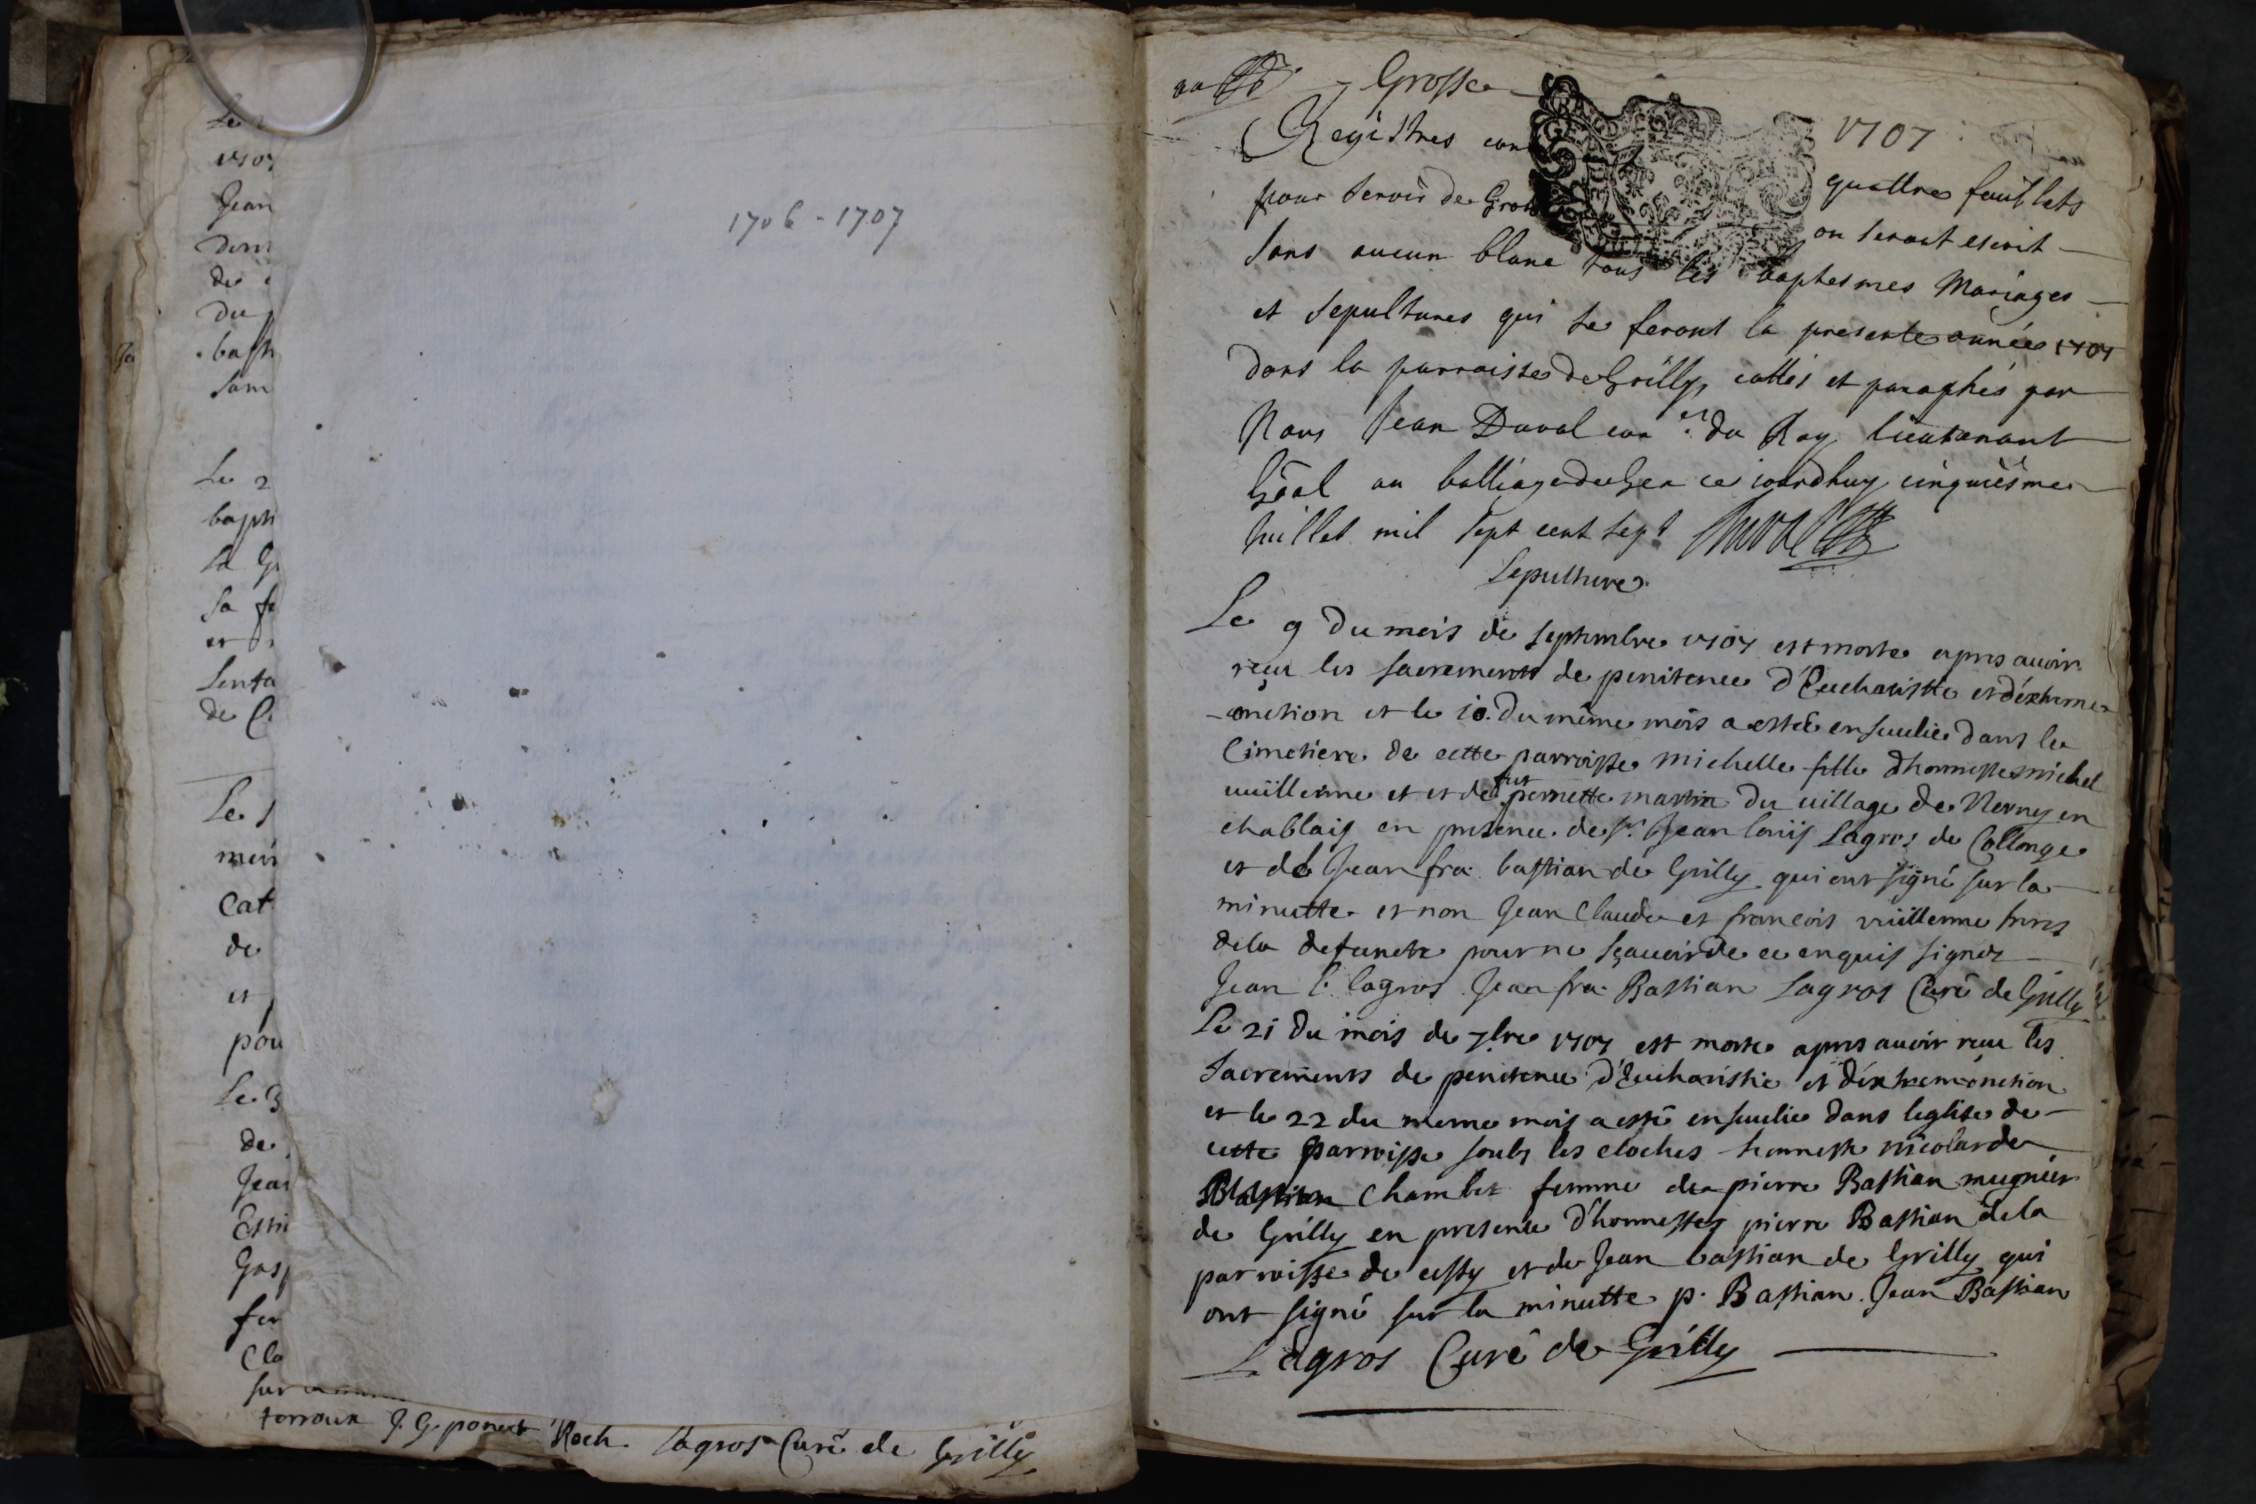 1707
Jean
de
du
bapt
Le 2
bapt
Sa
et
de
Le
Cat
de
et
pou
Le 3
de
Jean
fe
Cla
sur
terroux J. G. ponect Roch. Lagros Curé de Grilly
1706 - 1707
Grosse
1707
Registres quattre feuillets
pour servir de Grosse ou seront escrit
sans aucun blanc tous les baptesmes Mariages
et sepultures qui se feront la presente année 1707
dans la parroisse de Grilly, cottés et paraphés par
Nous Jean Duval con.er du Roy lieutenant
Gñal au balliage de Gex ce jourdhuy cinquiesme
Juillet mil sept cent sept Duval
Sepulture
Le 9 du mois de septembre 1707 est morte apres avoir
reçu les sacrements de penitence d'Eucharistie et d'éxtreme
-onction et le 10. du même mois a estée ensevelie dans le
Cimetiere de cette parroisse michelle fille d'honneste michel
vuillerme et et de fut pernette martin du village de Nerny en
chablais en presence de Sr. Jean loüis Lagros de Collonge
et de Jean fra. bastian de Grilly qui ont signé sur la
minutte et non Jean Claude et francois vuillerme freres
de la defuncte pour ne sçavoir de ce enquis signer
Jean l. lagros Jean fra. Bastian Lagros Curé de Grilly
Le 21 du mois de 7bre 1707 est morte apres avoir reçu les
Sacrements de penitence d'Eucharistie et d'éxtremonction
et le 22 du meme mois a esté ensevelie dans leglise de
cette parroisse soubs les cloches honneste nicolarde
Chambet femme de pierre Bastian mugnier
de Grilly en presence d'honnestes pierre Bastian de la
parroisse de cessy et de Jean bastian de Grilly qui
ont signé sur la minutte p. Bastian. Jean Bastian
Lagros Curé de Grilly